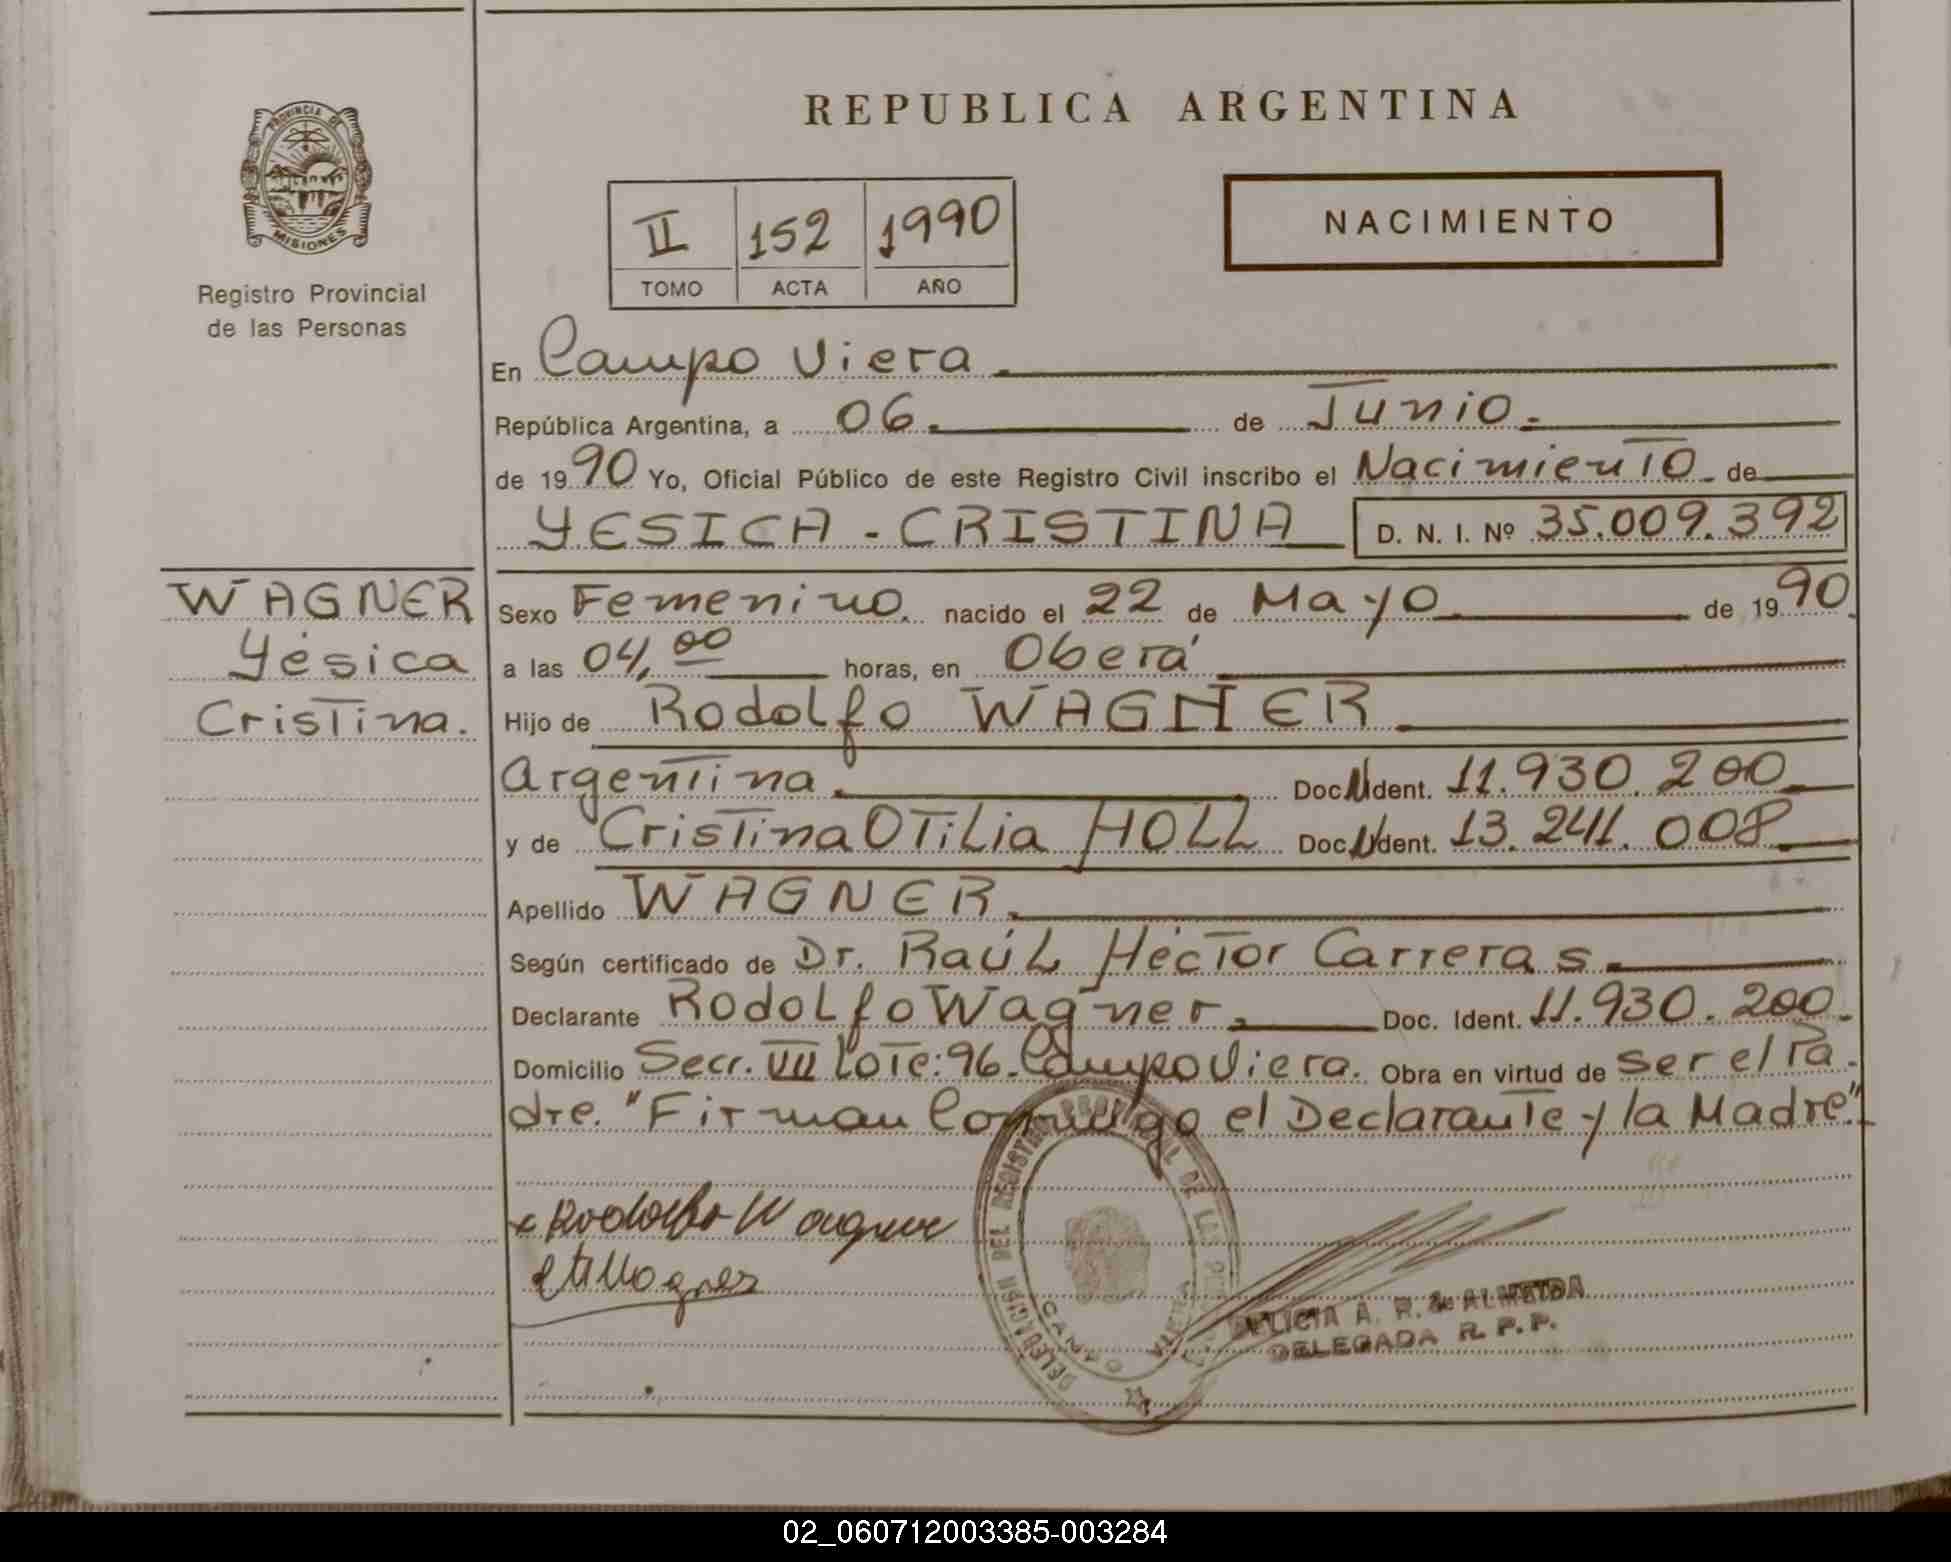 REPUBLICA ARGENTINA
PROVINCIA DE
MISIONES
Registro Provincial
de las Personas
II 152 1990
TOMO ACTA AÑO
NACIMIENTO
En Campo Viera.
República Argentina, a 06. de Junio.
de 1990 Yo, Oficial Público de este Registro Civil inscribo el Nacimiento de
YESICA - CRISTINA D. N. I. Nº 35.009.392
WAGNER
Yésica
Cristina.
Sexo Femenino. nacido el 22 de Mayo de 1990.
a las 04,00 horas, en Oberá
Hijo de Rodolfo WAGNER
Argentina. Doc. N Ident. 11.930.200
y de Cristina Otilia HOLL Doc. N Ident. 13.241.008
Apellido WAGNER.
Según certificado de Dr. Raúl Héctor Carreras.
Declarante Rodolfo Wagner. Doc. Ident. 11.930.200.
Domicilio Secc. VII Lote: 96. Campo Viera. Obra en virtud de ser el Pa-
dre. "Firman Conmigo el Declarante y la Madre".
x Rodolfo Wagner
DELEGACION DEL REGISTRO PROVINCIAL DE LAS PERSONAS
CAMPO VIERA
DELICIA A. R. de ALMEIDA
DELEGADA R. P. P.
02_060712003385-003284